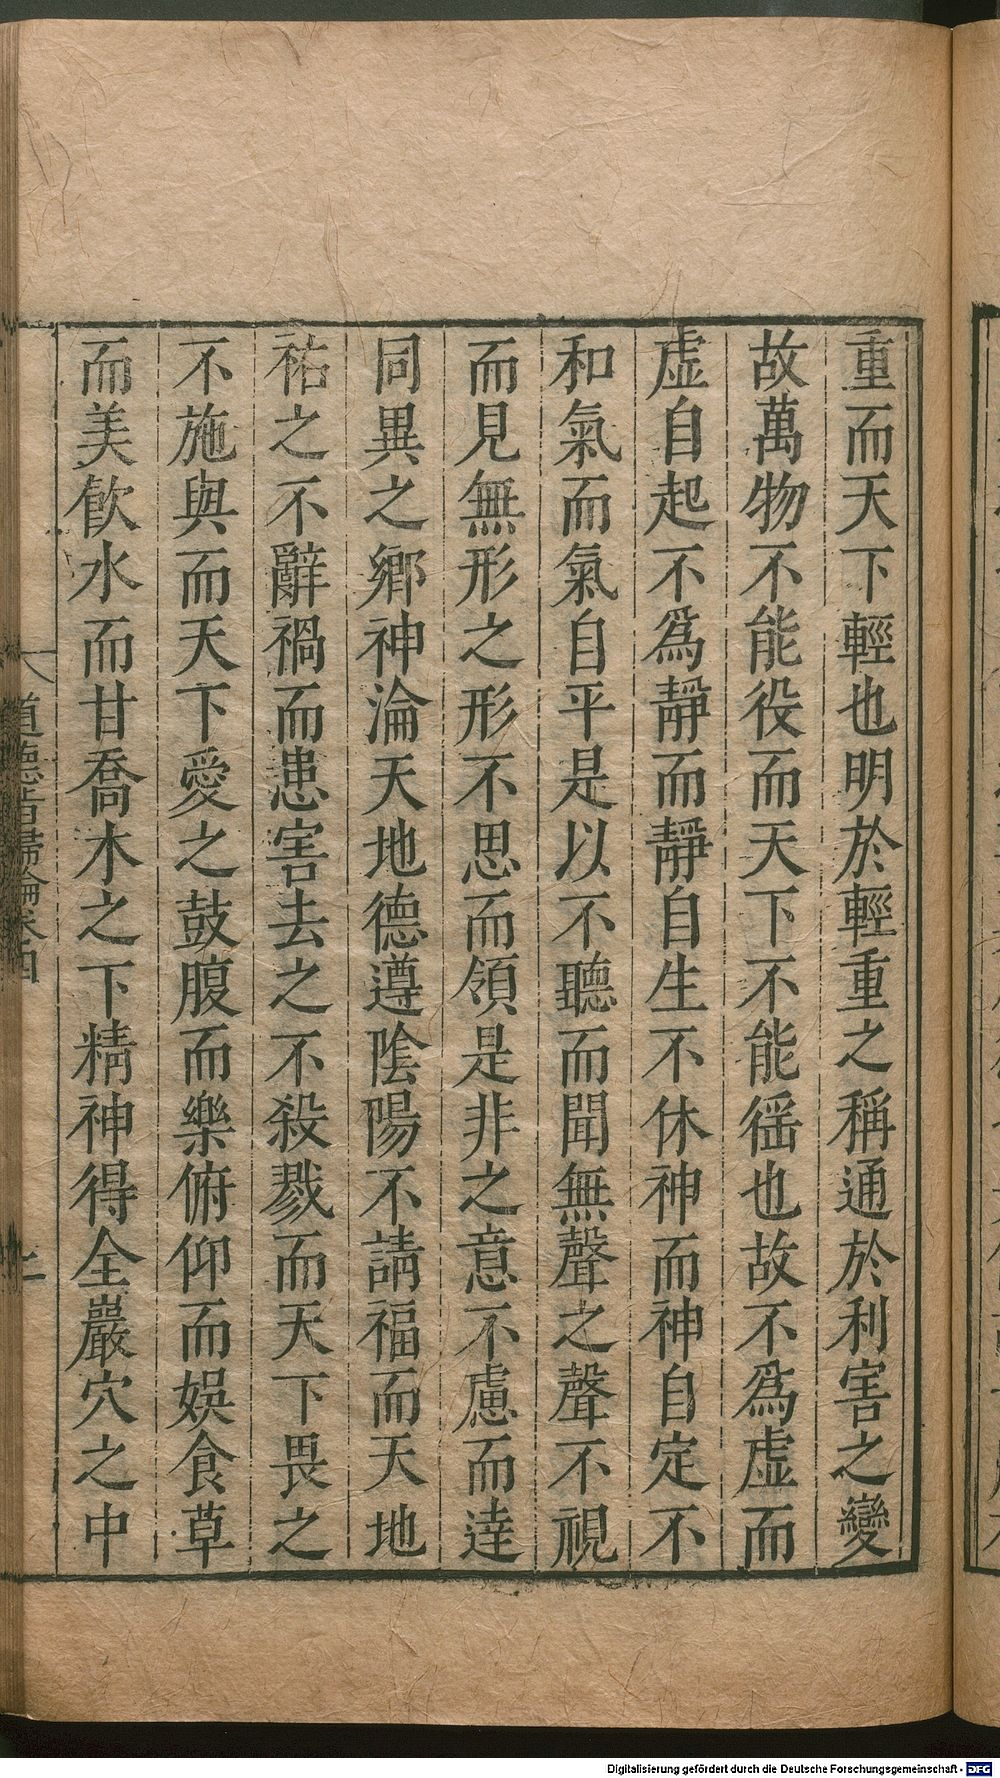 重而天下輕也明於輕重之稱通於利害之變
故萬物不能役而天下不能徭也故不爲虛而
虛自起不爲靜而靜自生不休神而神自定不
和氣而氣自平是以不聽而聞無聲之聲不視
而見無形之形不思而領是非之意不慮而達
同異之鄉神淪天地德遵陰陽不請福而天地
祐之不辭禍而患害去之不殺戮而天下畏之
不施與而天下愛之鼓腹而樂俯仰而娛食草
而美飲水而甘喬木之下精神得全巖穴之中
道德指歸論卷四
Digitalisierung gefördert durch die Deutsche Forschungsgemeinschaft - DFG